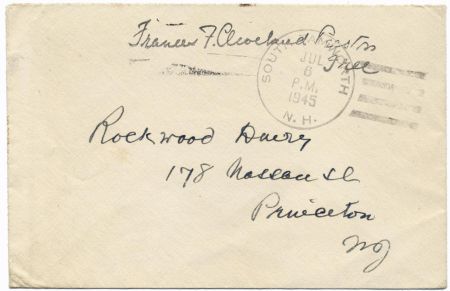 Frances F. Cleveland Preston
Free
SOUTH TAMWORTH
JUL
6
P.M.
1945
N.H.
Rockwood Dairy
178 Nassau St
Princeton
NJ